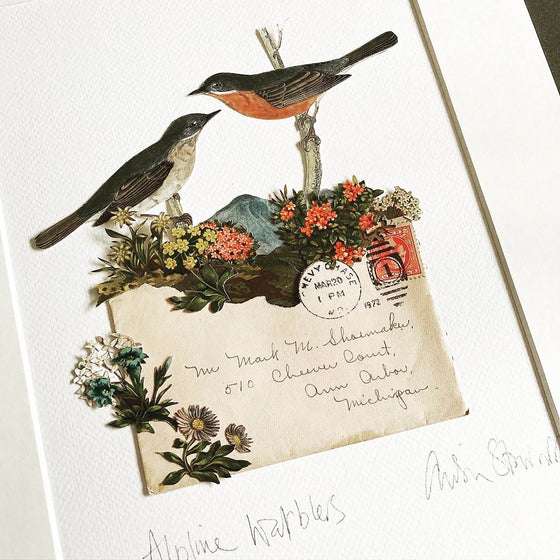 CHEVY CHASE
MAR 20
1 PM
1972
1
Mr Mark M. Shoemaker,
510 Cheever Court,
Ann Arbor,
Michigan.
Alpine Warblers